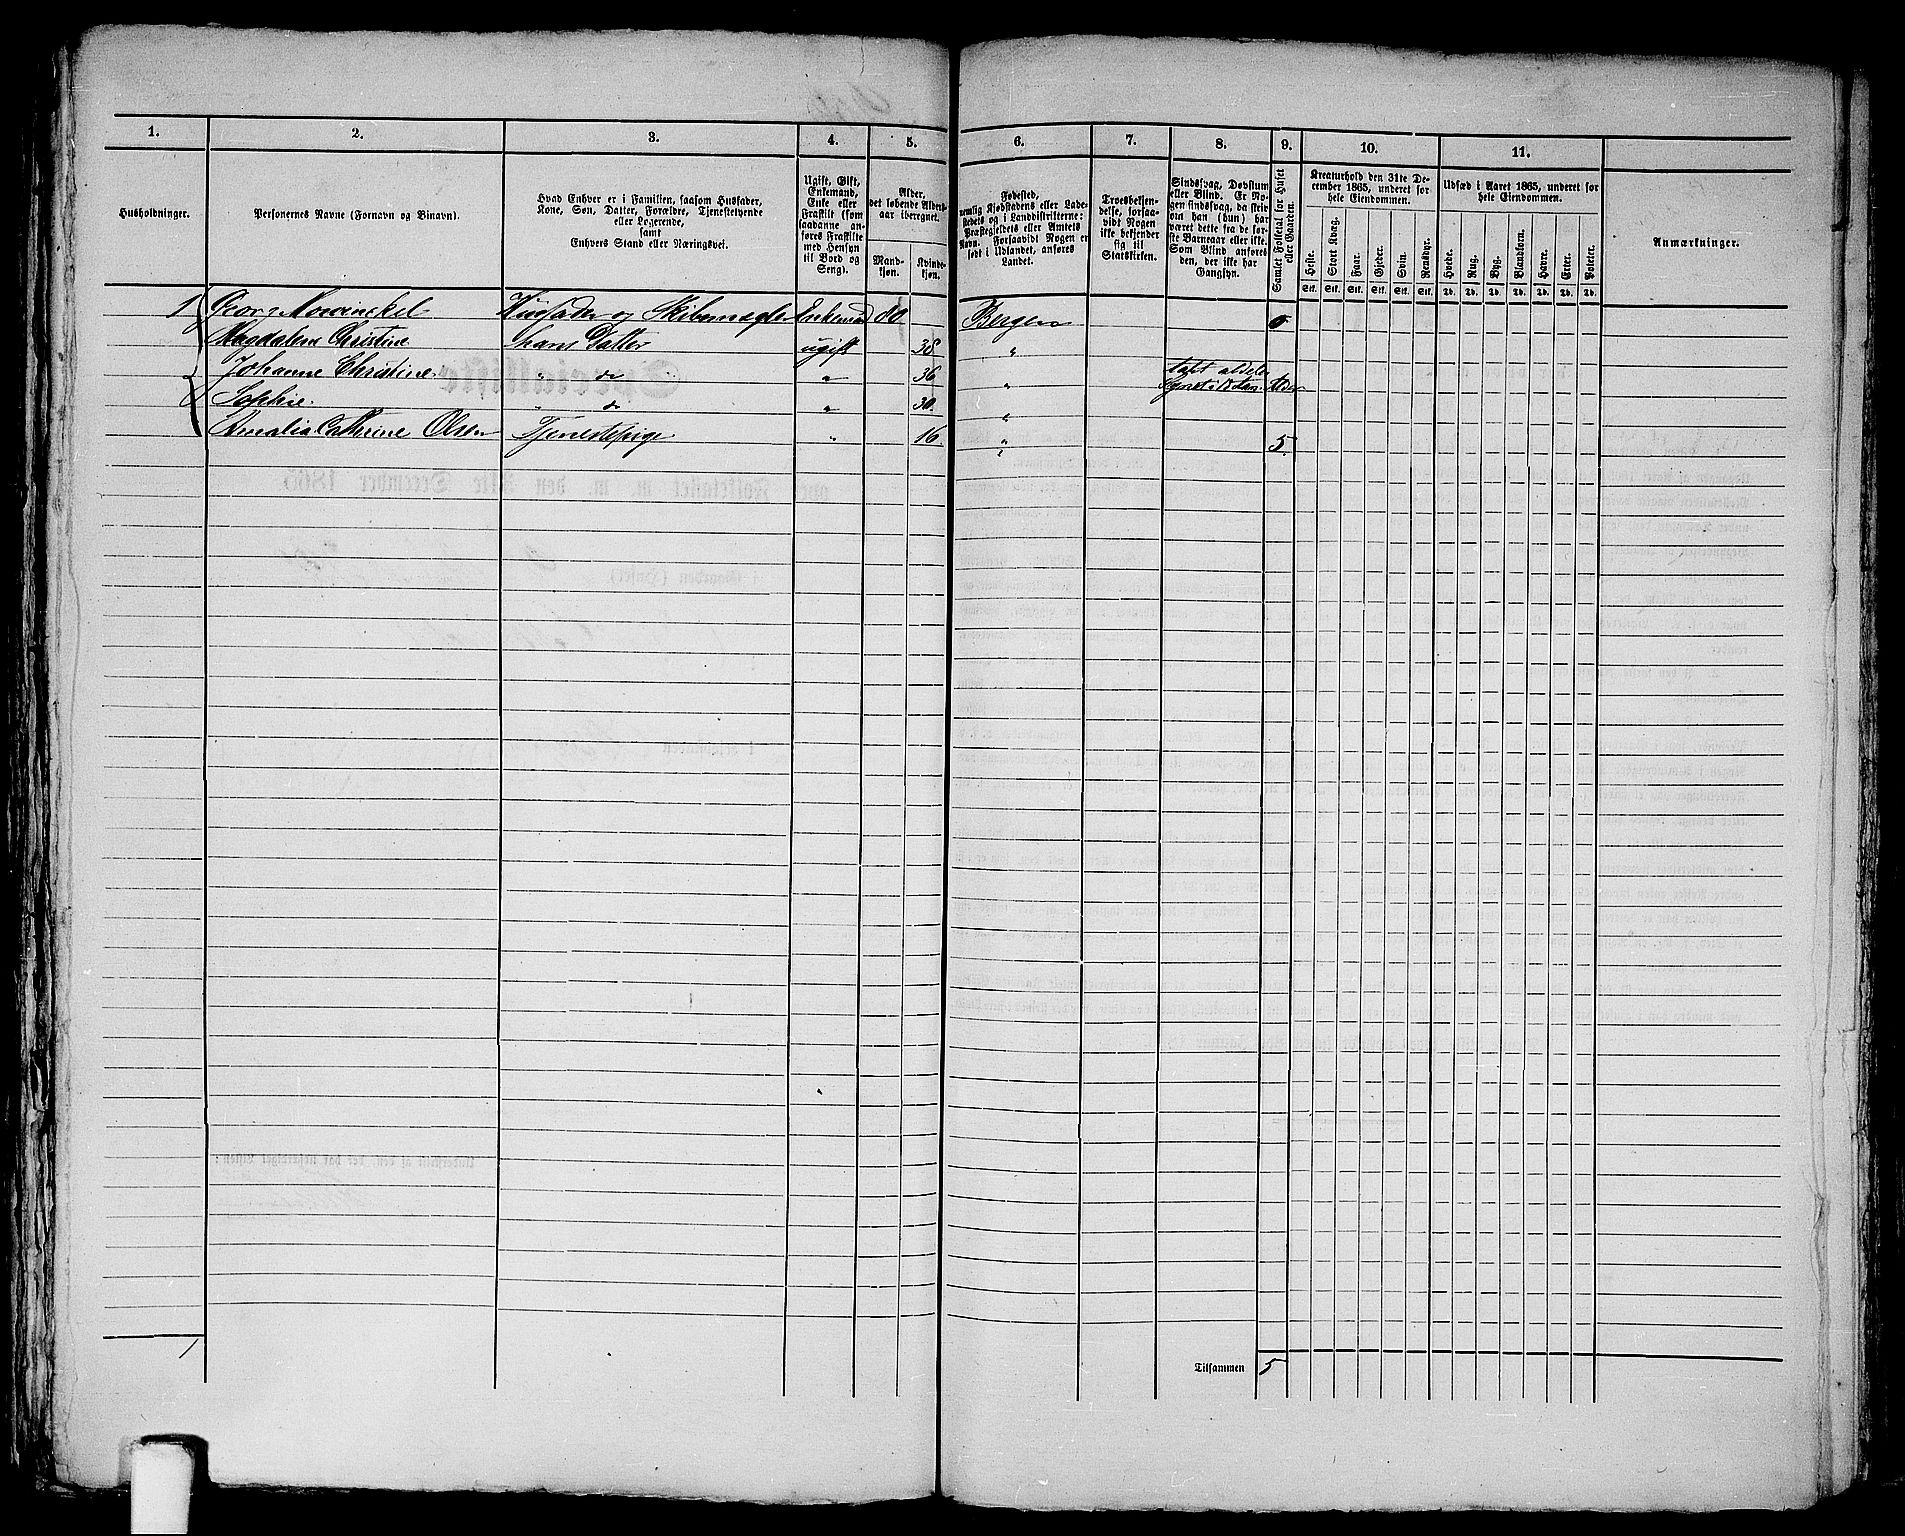 1.
2.
3.
4.
5.
6.
7.
8.
9.
10.
11.
Husholdninger.
Personernes Navne (Fornavn og Binavn).
Hvad Enhver er i Familien, saasom Husfader,
Kone, Søn, Datter, Forældre, Tjenestetyende
eller Logerende,
samt
Enhvers Stand eller Næringsvei.
Ugift, Gift,
Enkemand,
Enke eller
Fraskilt (som
saadanne an-
føres Fraskilte
med Hensyn
til Bord og
Seng).
Alder,
det løbende Alders-
aar iberegnet.
Mand-
kjøn.
Kvinde-
kjøn.
Fødested,
nemlig Kjøbstadens eller Lade-
stedets og i Landdistrikterne:
Præstegjeldets eller Amtets
Navn. Forsaavidt Nogen er
født i Udlandet, anføres
Landet.
Troesbekjen-
delse, forsaa-
vidt Nogen
ikke bekjender
sig til
Statskirken.
Sindssvag, Døvstum
eller Blind. Er No-
gen sindssvag, da skriv
om han (hun) har
været dette fra de før-
ste Barneaar eller ikke.
Som Blind anføres
den, der ikke har
Gangsyn.
Samlet Folketal for Huset
eller Gaarden.
Kreaturhold den 31te De-
cember 1865, underet for
hele Eiendommen.
Heste.
Stort Kvæg.
Faar.
Gjeder.
Svin.
Rensdyr.
Stk. Stk. Stk. Stk. Stk. Stk.
Udsæd i Aaret 1865, underet for
hele Eiendommen.
Hvede.
Rug.
Byg.
Blandkorn.
Havre.
Erter.
Poteter.
Td. Td. Td. Td. Td. Td. Td.
Anmærkninger.
1 Georg Mowinckel Husfader og Skibsmegler Enkemand 80 Bergen
Magdalene Christine hans Datter ugift 38 "
Johanne Christine " do " 36 "
Sophie. " do " 30 "
Amalia Catherine Olsen Tjenestepige " 16 " 5
1
Tilsammen 5